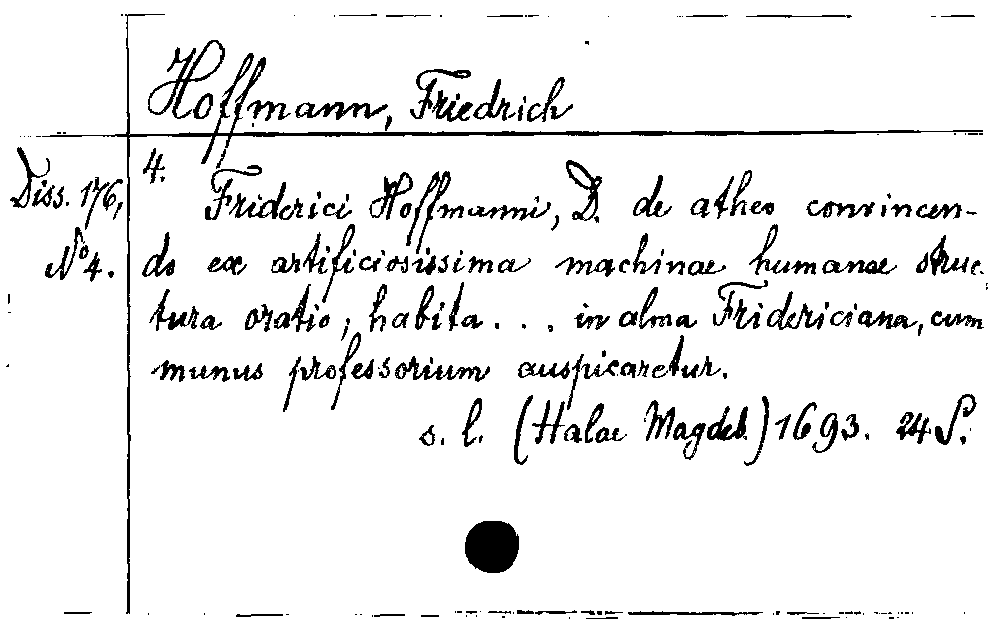 Hoffmann, Friedrich
Diss. 176,
No 4.
4.
Friderici Hoffmanni, D. de atheo convincen-
do ex artificiosissima machinae humanae struc-
tura oratio, habita . . . in alma Fridericiana, cum
munus professorium auspicaretur.
s. l. (Halae Magdeb.) 1693. 24 S.